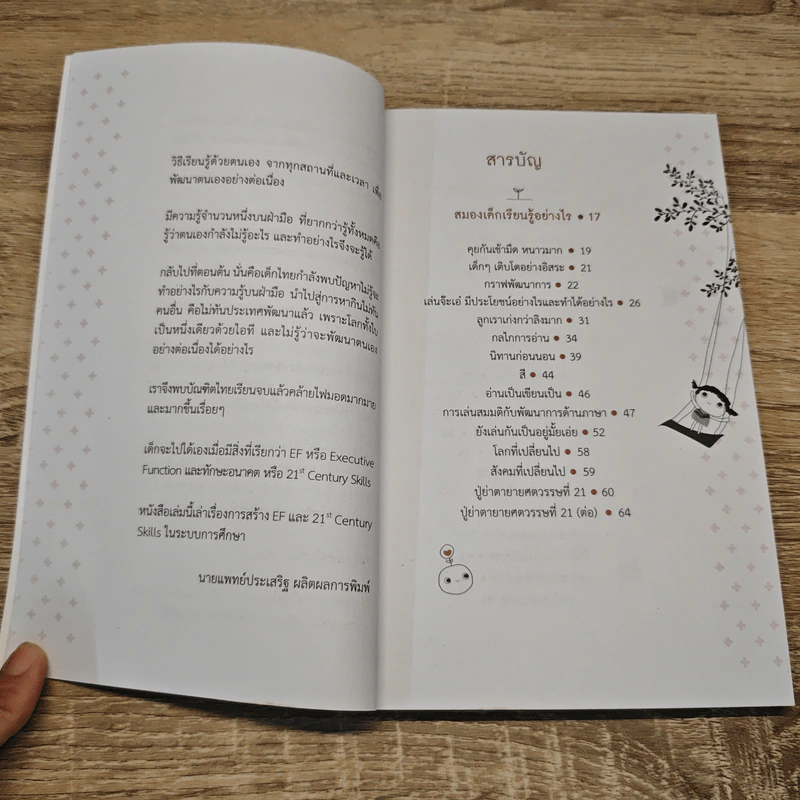 วิธีเรียนรู้ด้วยตนเอง จากทุกสถานที่และเวลา เพื่อ
พัฒนาตนเองอย่างต่อเนื่อง
มีความรู้จำนวนหนึ่งบนฝ่ามือ ที่ยากกว่ารู้ทั้งหมดคือ
รู้ว่าตนเองกำลังไม่รู้อะไร และทำอย่างไรจึงจะรู้ได้
กลับไปที่ตอนต้น นั่นคือเด็กไทยกำลังพบปัญหาไม่รู้จะ
ทำอย่างไรกับความรู้บนฝ่ามือ นำไปสู่การหากินไม่ทัน
คนอื่น คือไม่ทันประเทศพัฒนาแล้ว เพราะโลกทั้งใบ
เป็นหนึ่งเดียวด้วยไอที และไม่รู้ว่าจะพัฒนาตนเอง
อย่างต่อเนื่องได้อย่างไร
เราจึงพบบัณฑิตไทยเรียนจบแล้วคล้ายไฟมอดมากมาย
และมากขึ้นเรื่อยๆ
เด็กจะไปได้เองเมื่อมีสิ่งที่เรียกว่า EF หรือ Executive
Function และทักษะอนาคต หรือ 21st Century Skills
หนังสือเล่มนี้เล่าเรื่องการสร้าง EF และ 21st Century
Skills ในระบบการศึกษา
นายแพทย์ประเสริฐ ผลิตผลการพิมพ์
สารบัญ
สมองเด็กเรียนรู้อย่างไร • 17
คุยกันเช้ามืด หนาวมาก • 19
เด็กๆ เติบโตอย่างอิสระ • 21
กราฟพัฒนาการ • 22
เล่นจ๊ะเอ๋ มีประโยชน์อย่างไรและทำได้อย่างไร • 26
ลูกเราเก่งกว่าลิงมาก • 31
กลไกการอ่าน • 34
นิทานก่อนนอน • 39
สี • 44
อ่านเป็นเขียนเป็น • 46
การเล่นสมมติกับพัฒนาการด้านภาษา • 47
ยังเล่นกันเป็นอยู่มั้ยเอ่ย • 52
โลกที่เปลี่ยนไป • 58
สังคมที่เปลี่ยนไป • 59
ปู่ย่าตายายศตวรรษที่ 21 • 60
ปู่ย่าตายายศตวรรษที่ 21 (ต่อ) • 64